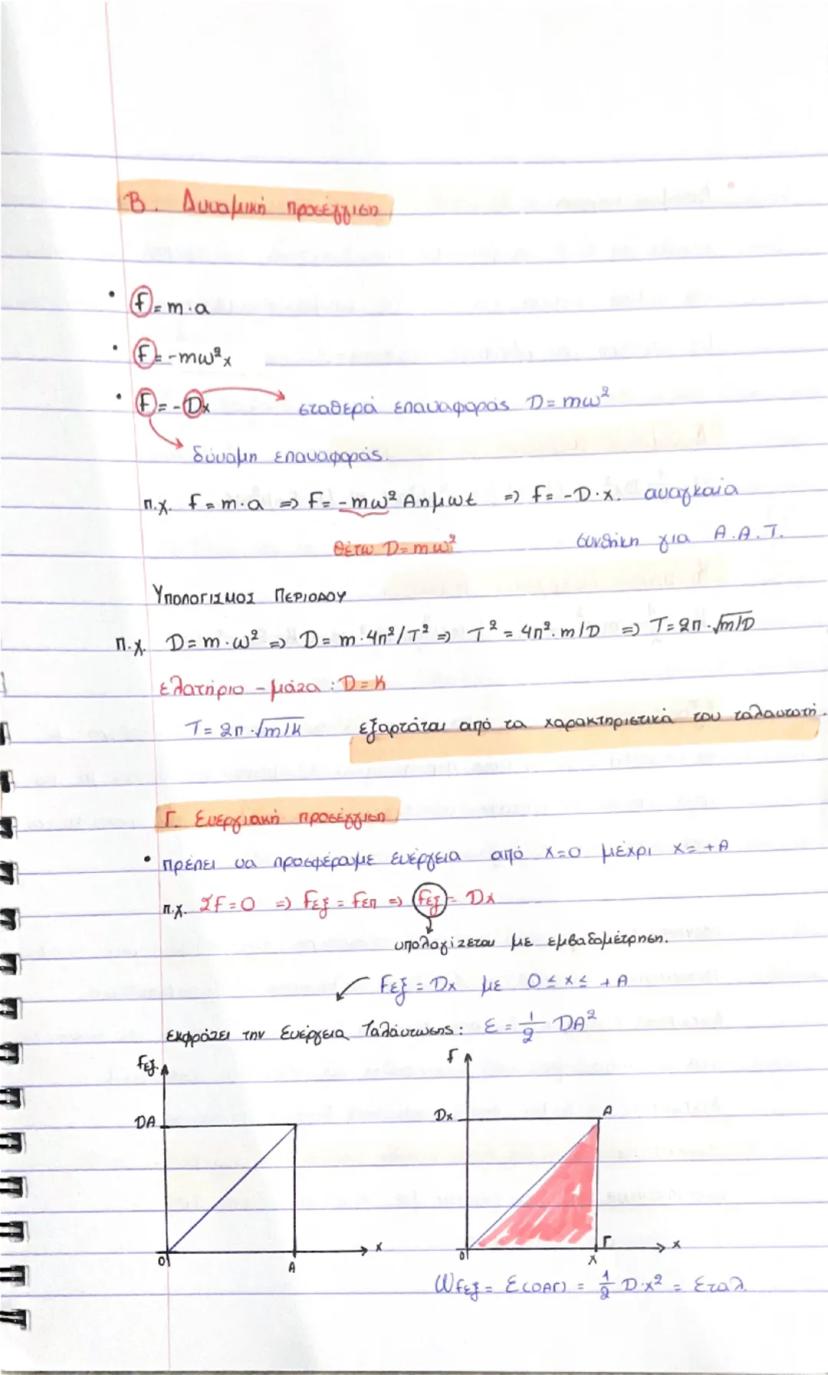 Β. Δυναμική προσέγγιση
• F = m·a
• F = -mω²x
• F = -Dx → σταθερά επαναφοράς D = mω²
δύναμη επαναφοράς.
π.χ. F = m·a => F = -mω² Aημωt => F = -D·x. αναγκαία
θέτω D = mω² συνθήκη για Α.Α.Τ.
ΥΠΟΛΟΓΙΣΜΟΣ ΠΕΡΙΟΔΟΥ
π.χ. D = m·ω² => D = m·4π²/T² => T² = 4π²·m/D => T = 2π·√m/D
ελατήριο - μάζα : D = K
T = 2π·√m/k εξαρτάται από τα χαρακτηριστικά του ταλαντωτή.
Γ. Ενεργειακή προσέγγιση
• πρέπει να προσφέραμε ενέργεια από x=0 μέχρι x=+A
π.χ. ΣF=0 => Fεξ = Fεπ => Fεξ = Dx
υπολογίζεται με εμβαδομέτρηση.
Fεξ = Dx με 0 ≤ x ≤ +A
εκφράζει την Ενέργεια Ταλάντωσης: E = 1/2 DA²
Fεξ
DA
0 A x
F
Dx A
Γ
0 x x
WFεξ = Ε(ΟΑΓ) = 1/2 D·x² = Εταλ.